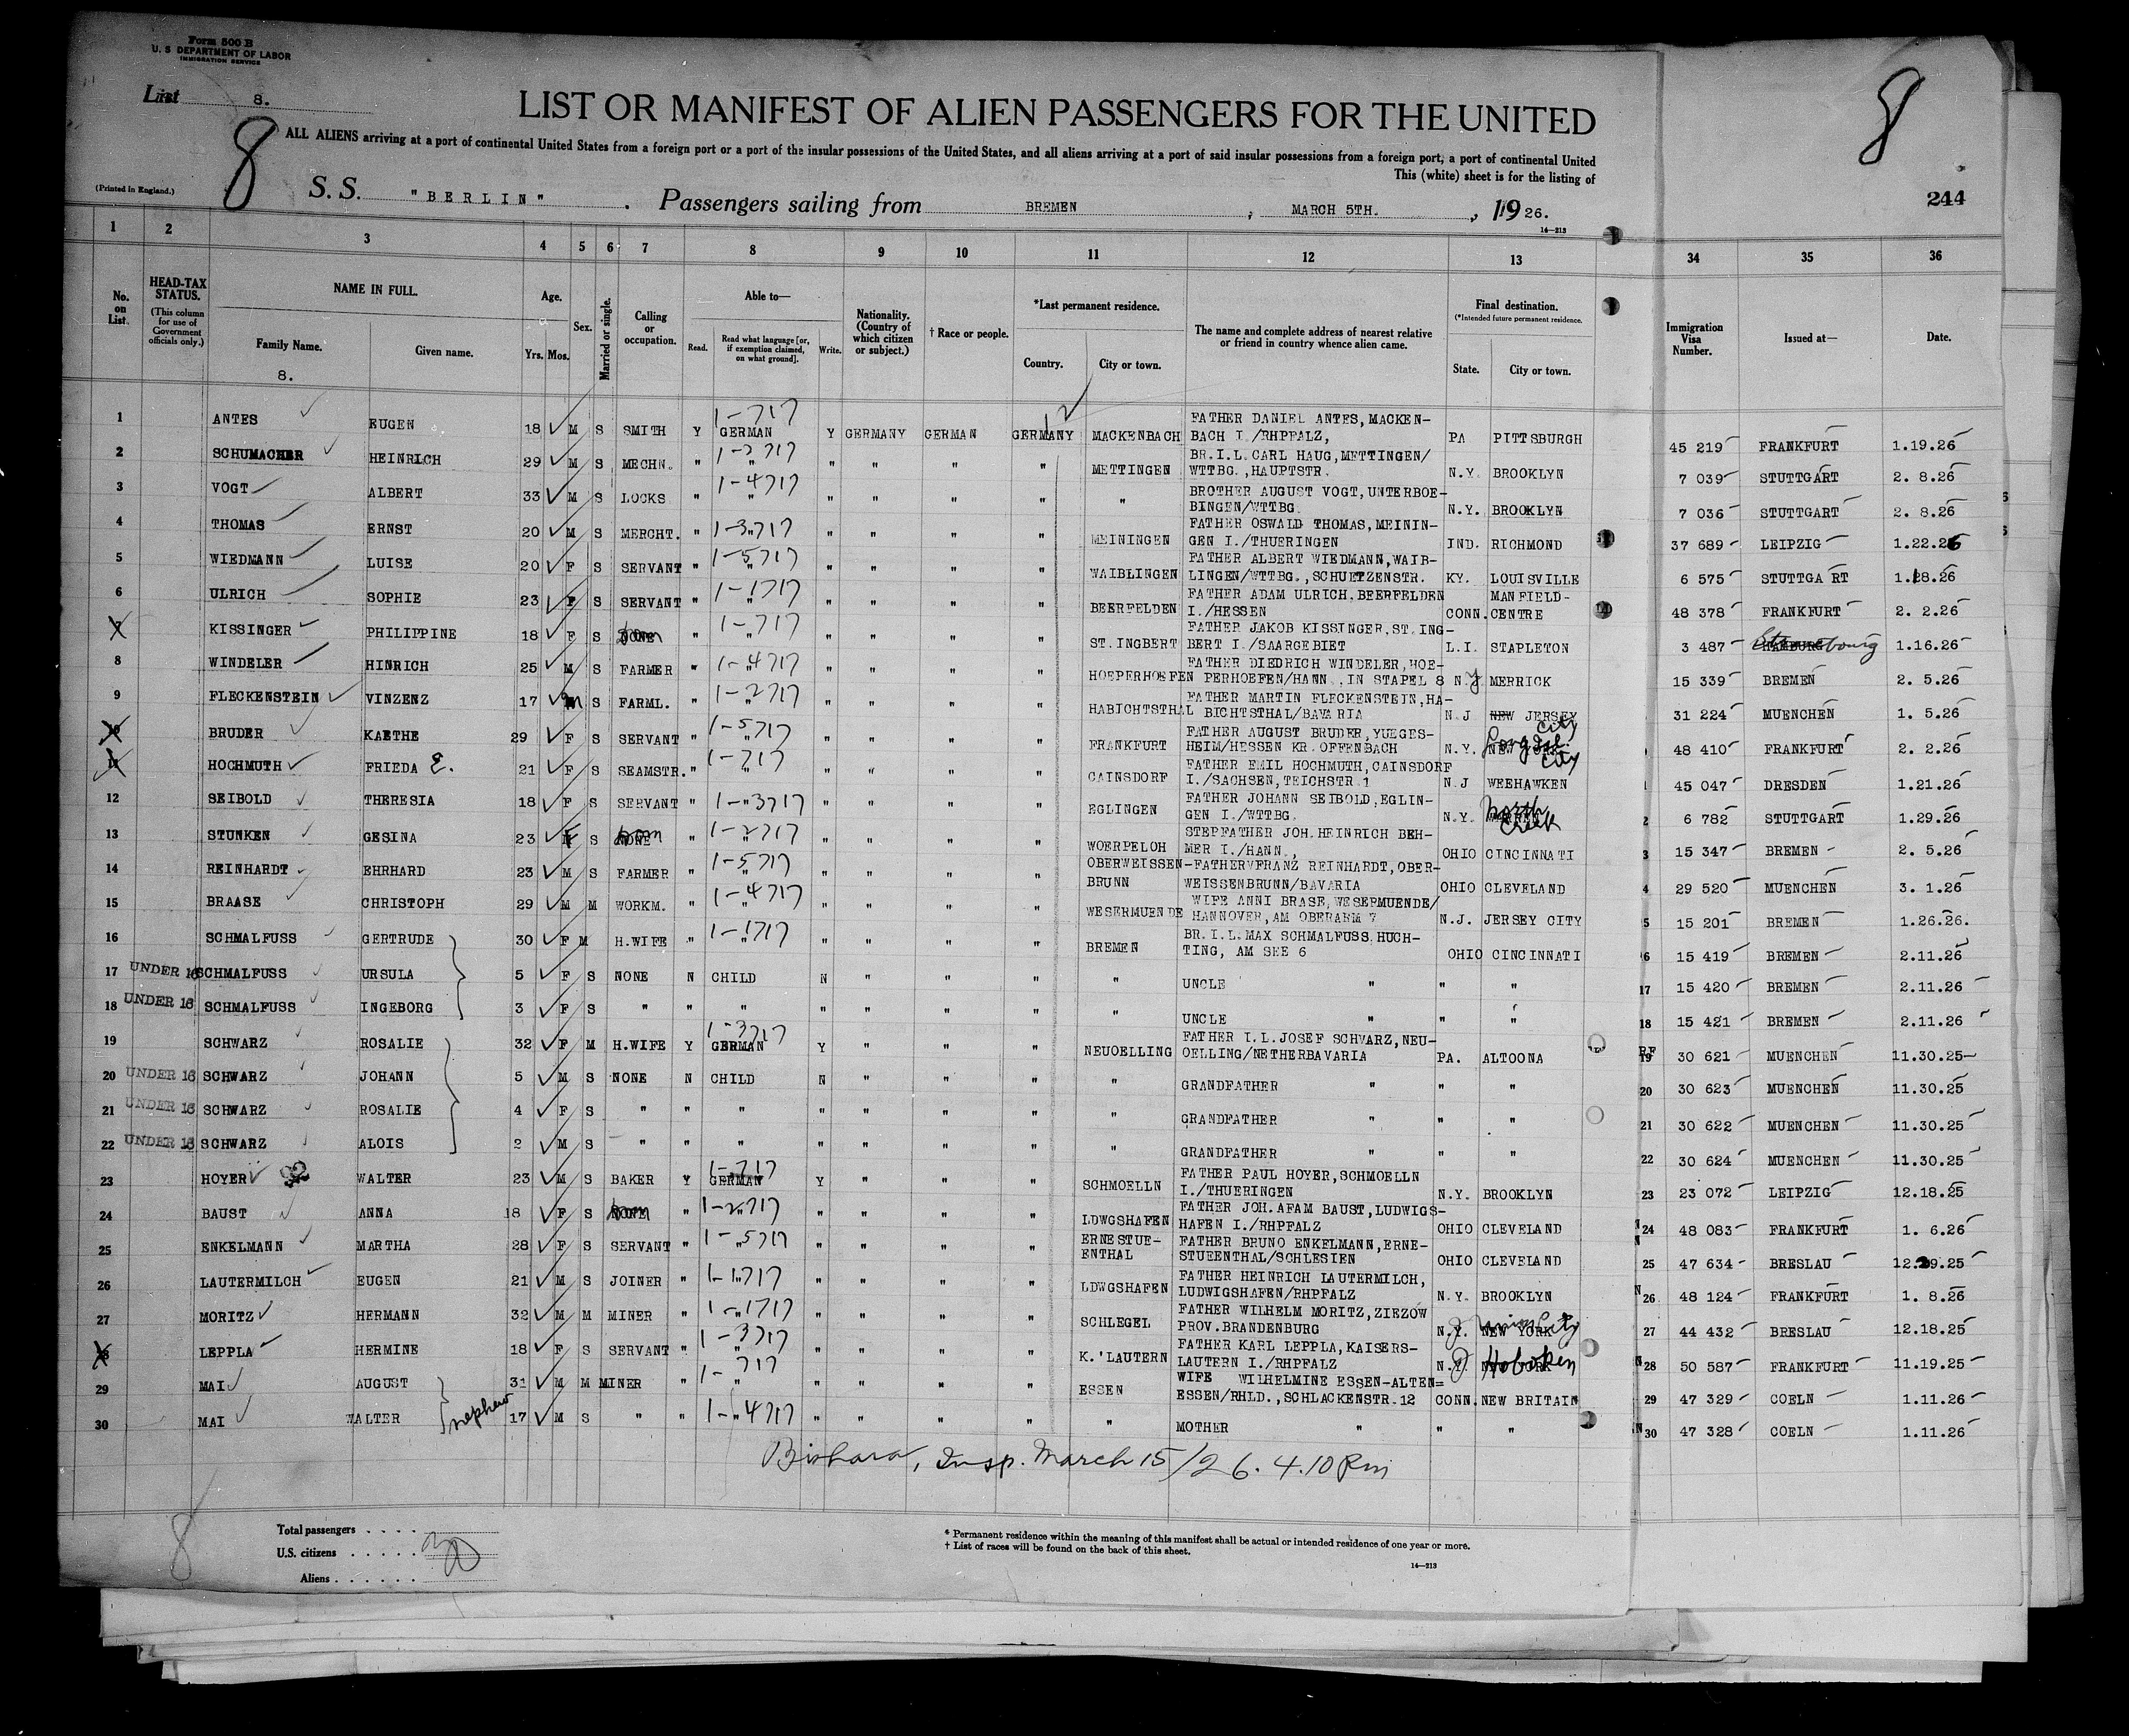 Form 500 B
U. S. DEPARTMENT OF LABOR
IMMIGRATION SERVICE
List 8.
8
8
LIST OR MANIFEST OF ALIEN PASSENGERS FOR THE UNITED
ALL ALIENS arriving at a port of continental United States from a foreign port or a port of the insular possessions of the United States, and all aliens arriving at a port of said insular possessions from a foreign port, a port of continental United
This (white) sheet is for the listing of
(Printed in England.)
S. S. "BERLIN" . Passengers sailing from BREMEN , MARCH 5TH. , 1926.
244
14—213
1 2 3 4 5 6 7 8 9 10 11 12 13 34 35 36
No. on List.
HEAD-TAX STATUS. (This column for use of Government officials only.)
NAME IN FULL.
Family Name. Given name.
8.
Age. Yrs. Mos.
Sex.
Married or single.
Calling or occupation.
Able to—
Read. Read what language [or, if exemption claimed, on what ground]. Write.
Nationality. (Country of which citizen or subject.)
† Race or people.
*Last permanent residence.
Country. City or town.
The name and complete address of nearest relative or friend in country whence alien came.
Final destination.
(*Intended future permanent residence.
State. City or town.
Immigration Visa Number.
Issued at—
Date.
1 ANTES EUGEN 18 M S SMITH Y 1-717 GERMAN Y GERMANY GERMAN GERMANY MACKENBACH FATHER DANIEL ANTES, MACKEN-BACH I./RHPFALZ, PA PITTSBURGH 45 219 FRANKFURT 1.19.26
2 SCHUMACHER HEINRICH 29 M S MECHN. " 1-2717 " " " " " METTINGEN BR.I.L.CARL HAUG, METTINGEN/WTTBG.,HAUPTSTR. N.Y. BROOKLYN 7 039 STUTTGART 2. 8.26
3 VOGT ALBERT 33 M S LOCKS. " 1-4717 " " " " " " BROTHER AUGUST VOGT, UNTERBOE-BINGEN/WTTBG. N.Y. BROOKLYN 7 036 STUTTGART 2. 8.26
4 THOMAS ERNST 20 M S MERCHT. " 1-3717 " " " " " MEININGEN FATHER OSWALD THOMAS, MEININ-GEN I./THUERINGEN IND. RICHMOND 37 689 LEIPZIG 1.22.26
5 WIEDMANN LUISE 20 F S SERVANT " 1-5717 " " " " " WAIBLINGEN FATHER ALBERT WIEDMANN, WAIB-LINGEN/WTTBG., SCHUETZENSTR. KY. LOUISVILLE 6 575 STUTTGA RT 1.28.26
6 ULRICH SOPHIE 23 F S SERVANT " 1-1717 " " " " " BEERFELDEN FATHER ADAM ULRICH, BEERFELDEN I./HESSEN CONN. MANFIELD-CENTRE 48 378 FRANKFURT 2. 2.26
7 KISSINGER PHILIPPINE 18 F S NONE " 1-717 " " " " " ST.INGBERT FATHER JAKOB KISSINGER, ST.ING-BERT I./SAARGEBIET L.I. STAPLETON 3 487 HAMBURG Strassbourg 1.16.26
8 WINDELER HINRICH 25 M S FARMER " 1-4717 " " " " " HOEPERHOEFEN FATHER DIEDRICH WINDELER, HOE-PERHOEFEN/HANN., IN STAPEL 8 N.Y MERRICK 15 339 BREMEN 2. 5.26
9 FLECKENSTEIN VINZENZ 17 M S FARML. " 1-2717 " " " " " HABICHTSTHAL FATHER MARTIN FLECKENSTEIN, HA-BICHTSTHAL/BAVARIA N.J NEW JERSEY City 31 224 MUENCHEN 1. 5.26
10 BRUDER KAETHE 29 F S SERVANT " 1-5717 " " " " " FRANKFURT FATHER AUGUST BRUDER, YUEGES-HEIM/HESSEN KR.OFFENBACH N.Y. NEW YORK Long Isl. City 48 410 FRANKFURT 2. 2.26
11 HOCHMUTH FRIEDA E. 21 F S SEAMSTR. " 1-717 " " " " " CAINSDORF FATHER EMIL HOCHMUTH, CAINSDORF I./SACHSEN, TEICHSTR.1 N.J WEEHAWKEN 45 047 DRESDEN 1.21.26
12 SEIBOLD THERESIA 18 F S SERVANT " 1-3717 " " " " " EGLINGEN FATHER JOHANN SEIBOLD, EGLIN-GEN I./WTTBG. N.Y. North Creek 6 782 STUTTGART 1.29.26
13 STUNKEN GESINA 23 F S NONE " 1-2717 " " " " " WOERPELOH STEPFATHER JOH.HEINRICH BEH-MER I./HANN., OHIO CINCINNATI 15 347 BREMEN 2. 5.26
14 REINHARDT EHRHARD 23 M S FARMER " 1-5717 " " " " " OBERWEISSEN-BRUNN FATHER FRANZ REINHARDT, OBER-WEISSENBRUNN/BAVARIA OHIO CLEVELAND 29 520 MUENCHEN 3. 1.26
15 BRAASE CHRISTOPH 29 M M WORKM. " 1-4717 " " " " " WESERMUENDE WIFE ANNI BRASE, WESEPMUENDE/HANNOVER, AM OBERAHM 7 N.J. JERSEY CITY 15 201 BREMEN 1.26.26.
16 SCHMALFUSS GERTRUDE 30 F M H.WIFE " 1-1717 " " " " " BREMEN BR.I.L.MAX SCHMALFUSS HUCH-TING, AM SEE 6 OHIO CINCINNATI 15 419 BREMEN 2.11.26
17 UNDER 16 SCHMALFUSS URSULA 5 F S NONE N CHILD N " " " " UNCLE " " " 15 420 BREMEN 2.11.26
18 UNDER 16 SCHMALFUSS INGEBORG 3 F S " " " " " " " " UNCLE " " " 15 421 BREMEN 2.11.26
19 SCHWARZ ROSALIE 32 F M H.WIFE Y 1-3717 GERMAN Y " " " NEUOELLING FATHER I.L.JOSEF SCHWARZ, NEU-OELLING/NETHERBAVARIA PA. ALTOONA 30 621 MUENCHEN 11.30.25
20 UNDER 16 SCHWARZ JOHANN 5 M S NONE N CHILD N " " " " GRANDFATHER " " " 30 623 MUENCHEN 11.30.25
21 UNDER 16 SCHWARZ ROSALIE 4 F S " " " " " " " " GRANDFATHER " " " 30 622 MUENCHEN 11.30.25
22 UNDER 16 SCHWARZ ALOIS 2 M S " " " " " " " " GRANDFATHER " " " 30 624 MUENCHEN 11.30.25
23 HOYER WALTER 23 M S BAKER Y 1-717 GERMAN Y " " " SCHMOELLN FATHER PAUL HOYER, SCHMOELLN I./THUERINGEN N.Y. BROOKLYN 23 072 LEIPZIG 12.18.25
24 BAUST ANNA 18 F S NONE " 1-2717 " " " " " LDWGSHAFEN FATHER JOH.AFAM BAUST, LUDWIGS-HAFEN I./RHPFALZ OHIO CLEVELAND 48 083 FRANKFURT 1. 6.26
25 ENKELMANN MARTHA 28 F S SERVANT " 1-5717 " " " " " ERNESTUE-ENTHAL FATHER BRUNO ENKELMANN, ERNE-STUEENTHAL/SCHLESIEN OHIO CLEVELAND 47 634 BRESLAU 12.29.25
26 LAUTERMILCH EUGEN 21 M S JOINER " 1-1717 " " " " " LDWGSHAFEN FATHER HEINRICH LAUTERMILCH, LUDWIGSHAFEN/RHPFALZ N.Y. BROOKLYN 48 124 FRANKFURT 1. 8.26
27 MORITZ HERMANN 32 M M MINER " 1-1717 " " " " " SCHLEGEL FATHER WILHELM MORITZ, ZIEZOW PROV.BRANDENBURG N.Y. J NEW YORK Union City 44 432 BRESLAU 12.18.25
28 LEPPLA HERMINE 18 F S SERVANT " 1-3717 " " " " " K.'LAUTERN FATHER KARL LEPPLA, KAISERS-LAUTERN I./RHPFALZ N.Y. J NEW YORK Hoboken 50 587 FRANKFURT 11.19.25
29 MAI AUGUST 31 M M MINER " 1-717 " " " " " ESSEN WIFE WILHELMINE ESSEN-ALTEN=ESSEN/RHLD., SCHLACKENSTR.12 CONN. NEW BRITAIN 47 329 COELN 1.11.26
30 MAI WALTER nephew 17 M S " " 1-4717 " " " " " " MOTHER " " " 47 328 COELN 1.11.26
Insp. March 15/26. 4.10 Pm
8
Total passengers . . . .
U.S. citizens . . . . . 30
Aliens . . . . . . .
* Permanent residence within the meaning of this manifest shall be actual or intended residence of one year or more.
† List of races will be found on the back of this sheet.
14—213